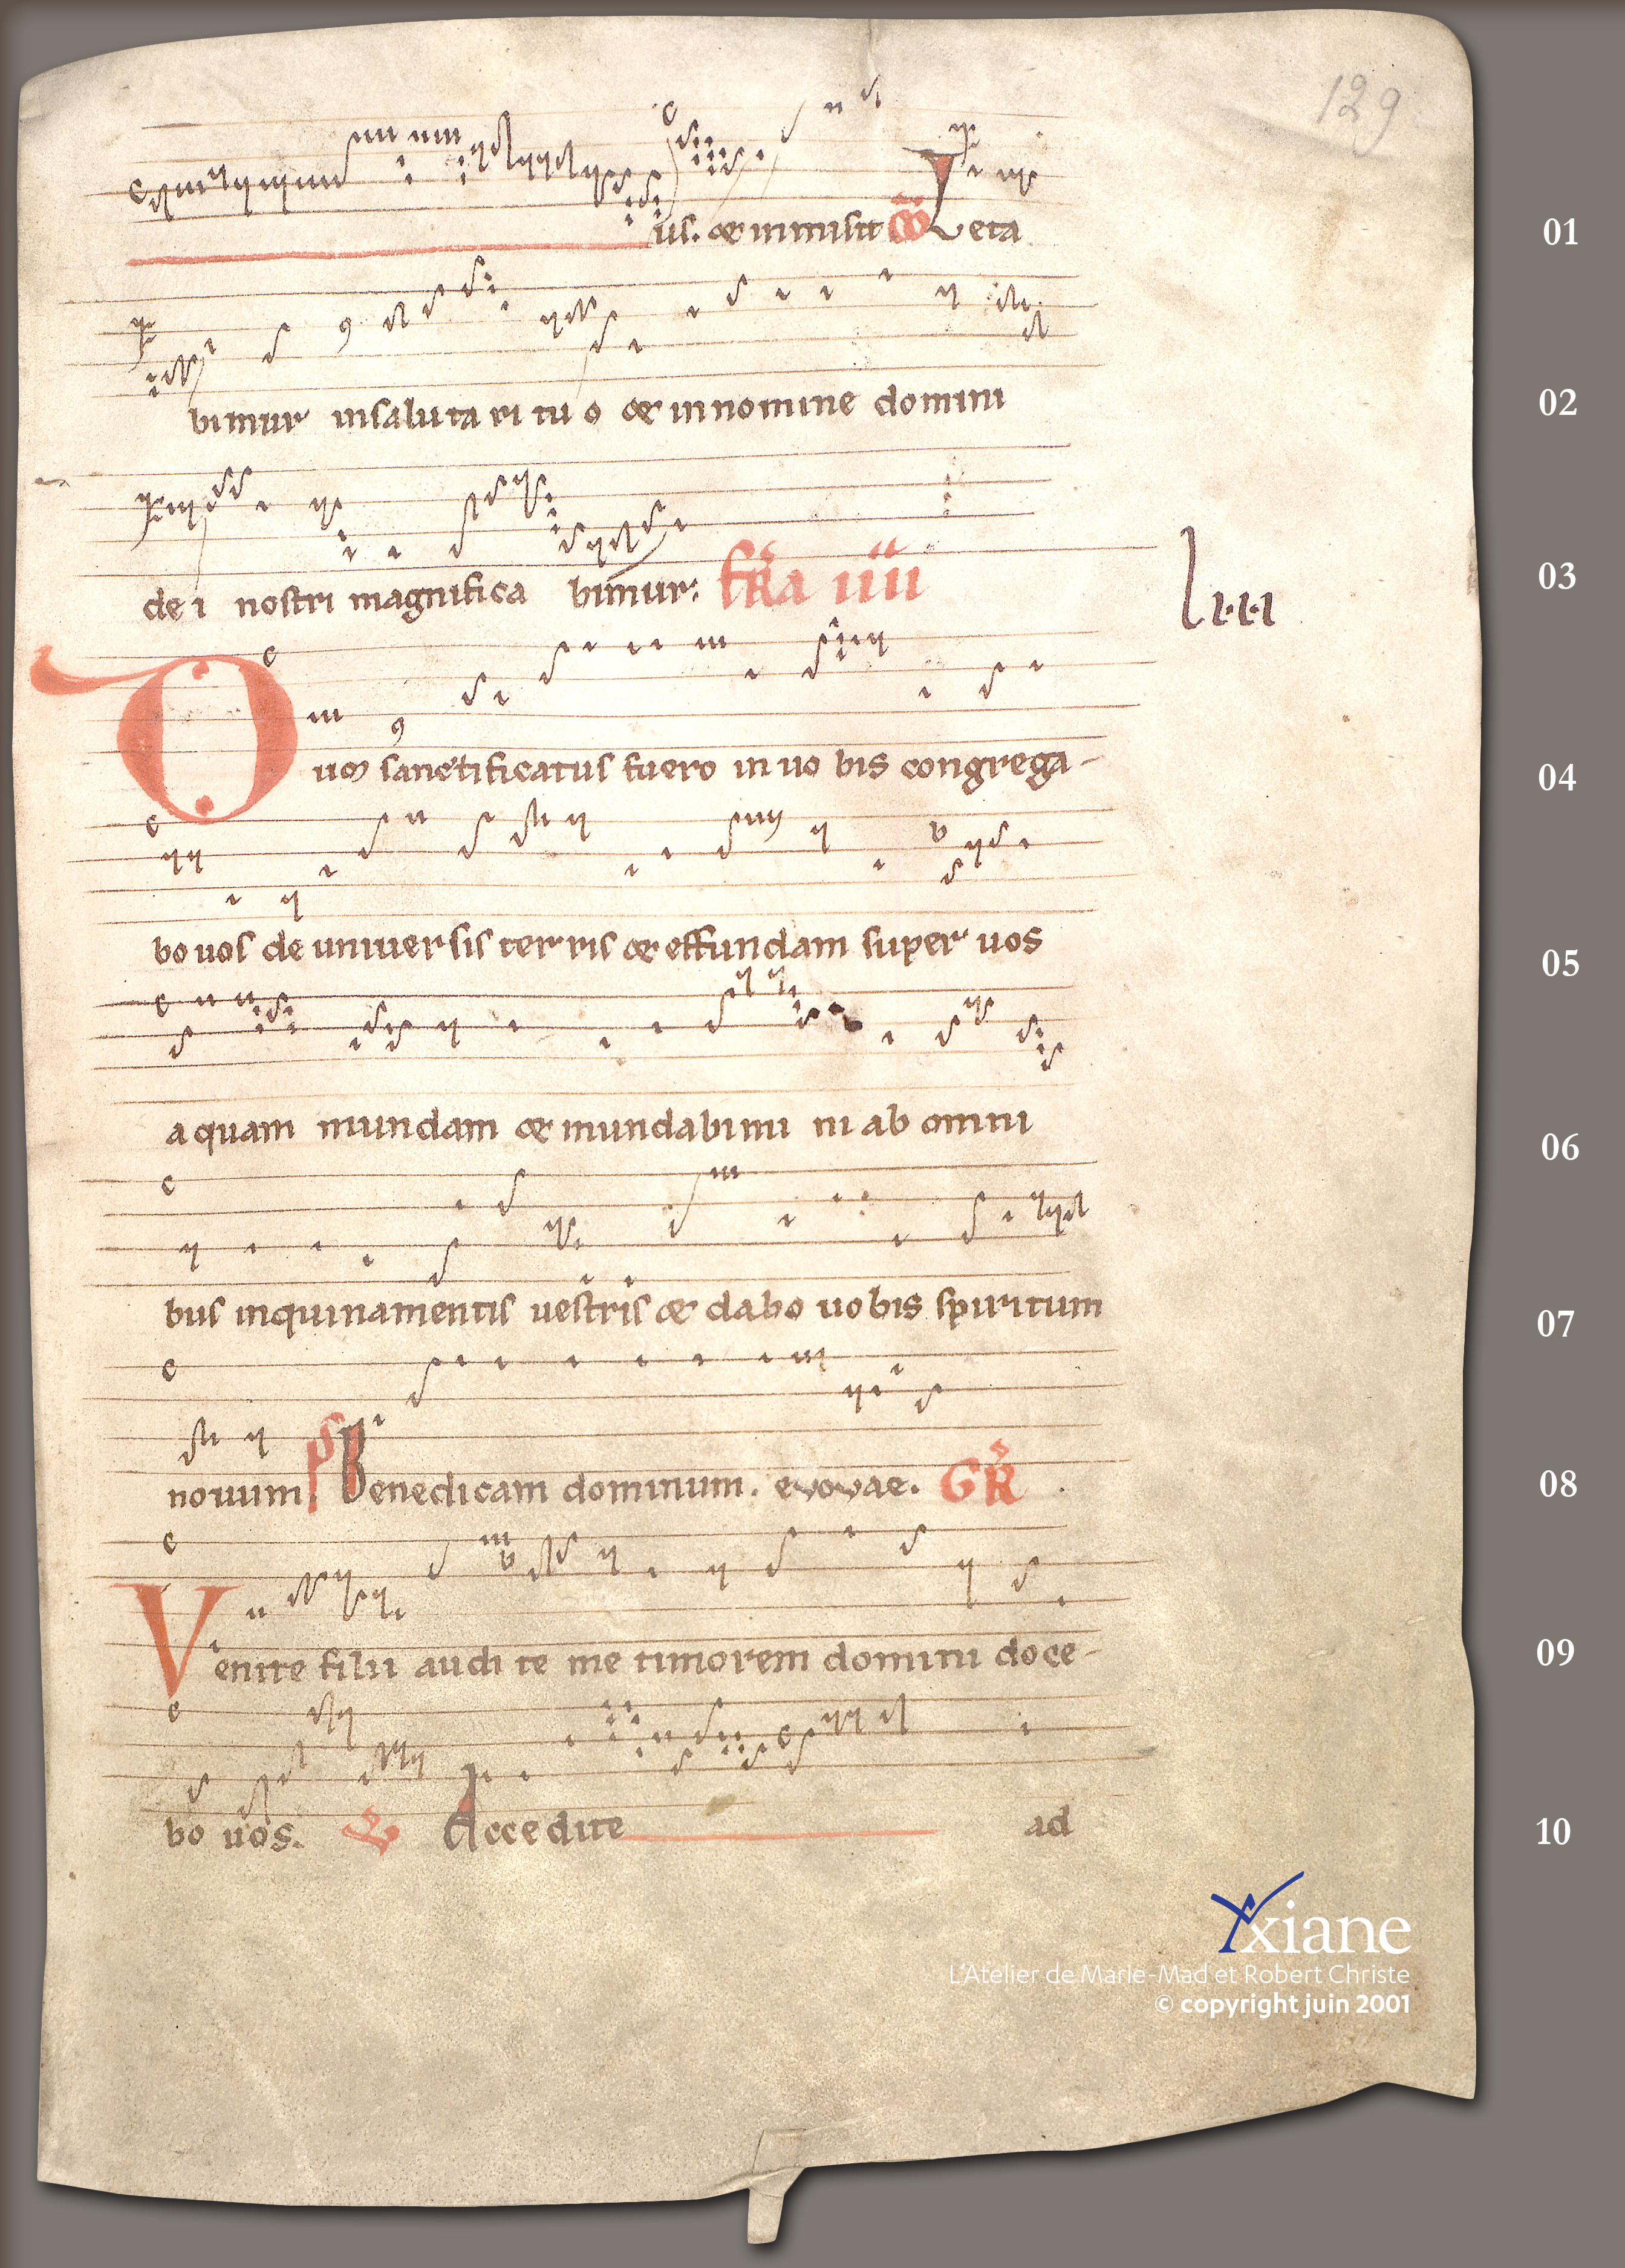 129
us. & inmisit c̄o Leta 01
bimur insaluta ri tu o & innomine domini 02
de i nostri magnifica bimur: fr̄a iiii 03
liii
Dum sanctificatus fuero in uo bis congrega- 04
bo uos de uniuer sis ter ris & effundam super uos 05
a quam mundam & mundabimi ni ab omni 06
bus inquinamentis uestris & dabo uobis spiritum 07
nouum. ps Benedicam dominum. evovae. GR̄ 08
Venite filii audi te me timorem domini doce- 09
bo uos. V Accedite ad 10
Yxiane
L'Atelier de Marie-Mad et Robert Christe
© copyright juin 2001